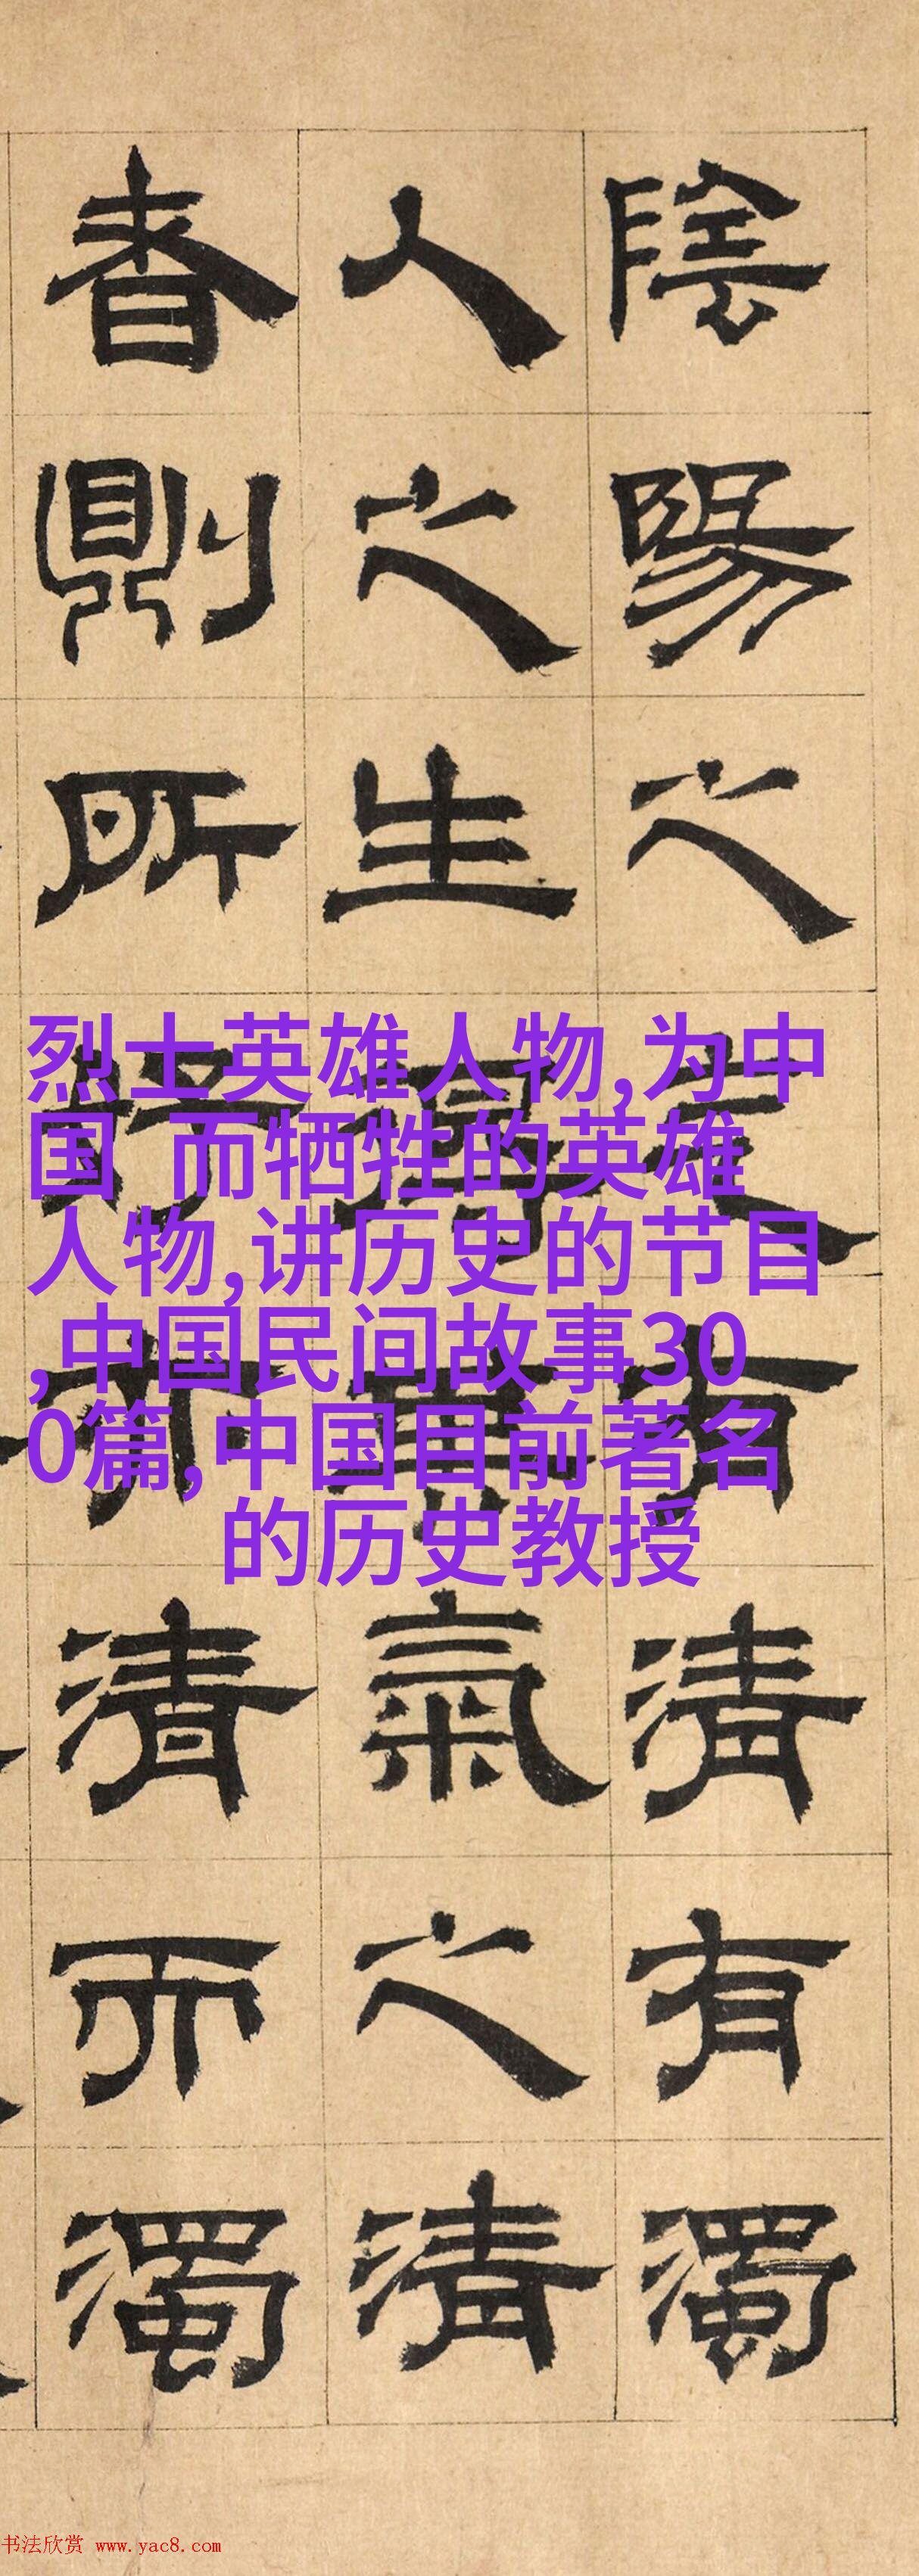 陰陽之气有清有濁
人之生得其氣之清
者則所清而濁
烈士英雄人物,为中
国 而牺牲的英雄
人物,讲历史的节目
,中国民间故事30
0篇,中国目前著名
的历史教授
书法欣赏 www.yac8.com